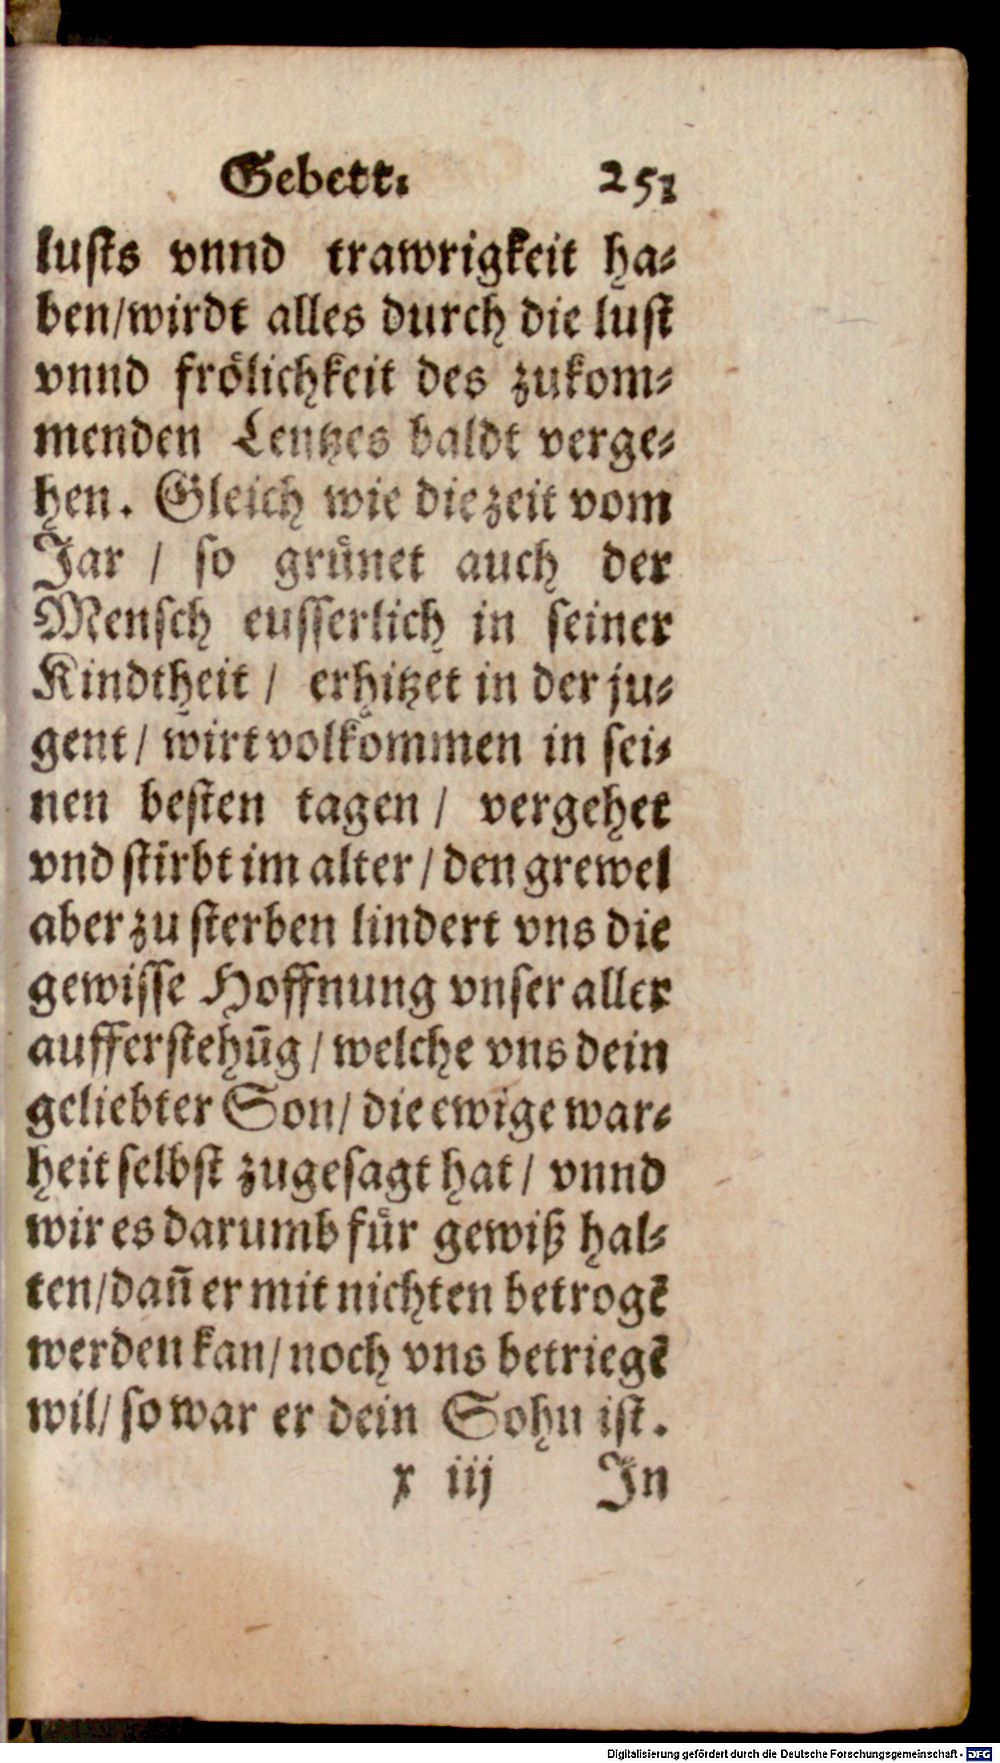 Gebett: 251
lusts vnnd trawrigkeit ha-
ben/wirdt alles durch die lust
vnnd frölichkeit des zukom-
menden Lentzes baldt verge-
hen. Gleich wie die zeit vom
Jar / so grünet auch der
Mensch eusserlich in seiner
Kindtheit / erhitzet in der ju-
gent / wirt volkommen in sei-
nen besten tagen / vergehet
vnd stirbt im alter / den grewel
aber zu sterben lindert vns die
gewisse Hoffnung vnser aller
aufferstehūg / welche vns dein
geliebter Son / die ewige war-
heit selbst zugesagt hat / vnnd
wir es darumb für gewiß hal-
ten/dañ er mit nichten betrogẽ
werden kan/noch vns betriegẽ
wil/ so war er dein Sohn ist.
x iij In
Digitalisierung gefördert durch die Deutsche Forschungsgemeinschaft - DFG